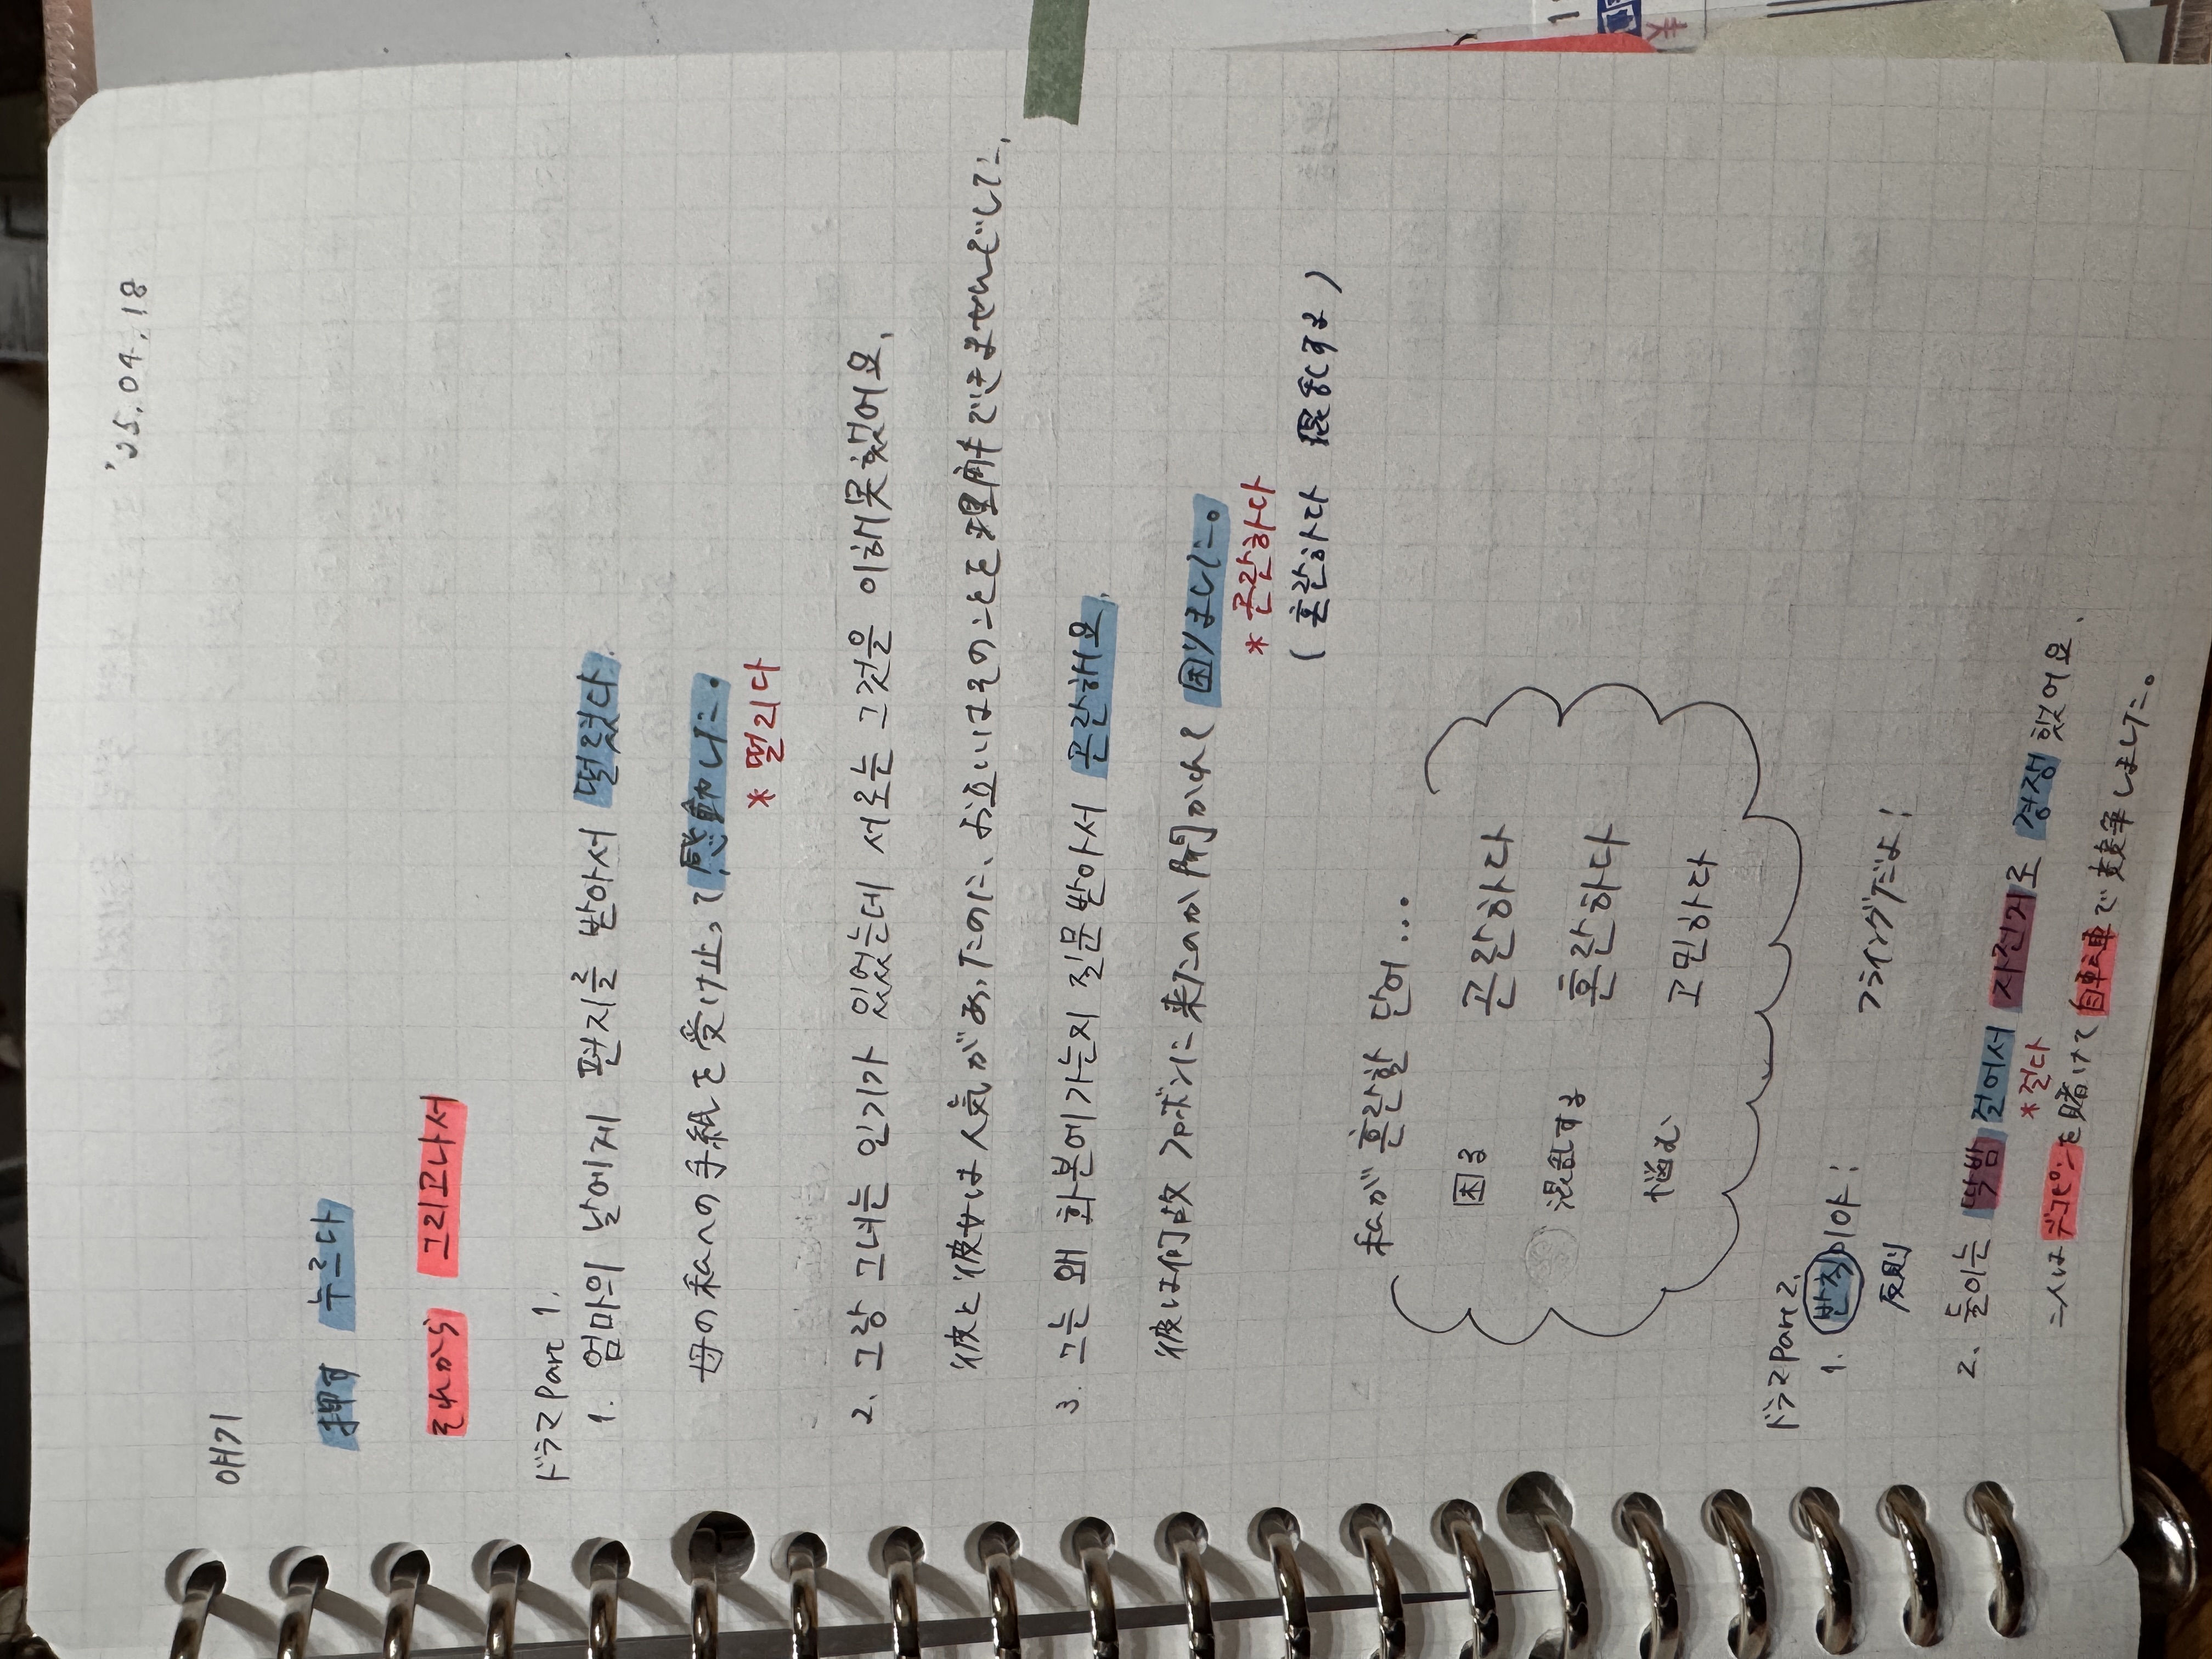 '25.04.18
얘기
押す 누르다
それから 그리고나서
ドラマ Part 1.
1. 엄마의 날에게 편지를 받아서 떨렸다.
母の私への手紙を受け止って感動した。
* 떨리다
2. 그랑 그녀는 인기가 있었는데 서로는 그것을 이해 못했어요.
彼と彼女は人気があったのに、お互いはそのことを理解できませんでした.
3. 그는 왜 화본에 가는지 질문 받아서 곤란해요.
彼は何故ファボンに来たのか聞かれて困りました。
* 곤란하다
( 혼란하다 混乱する )
私が 혼란할 단어...
困る 곤란하다
混乱する 혼란하다
悩む 고민하다
ドラマ Part 2.
1. 반칙이야! フライングだよ!
反則
2. 둘이는 딱밤 걸어서 자전거로 경쟁했어요.
* 걸다
二人はデコピンを賭けて自転車で競争しました。